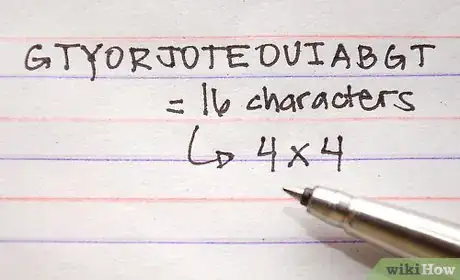 GTYORJOTEOUIABGT
= 16 characters
4 x 4
wikiHow